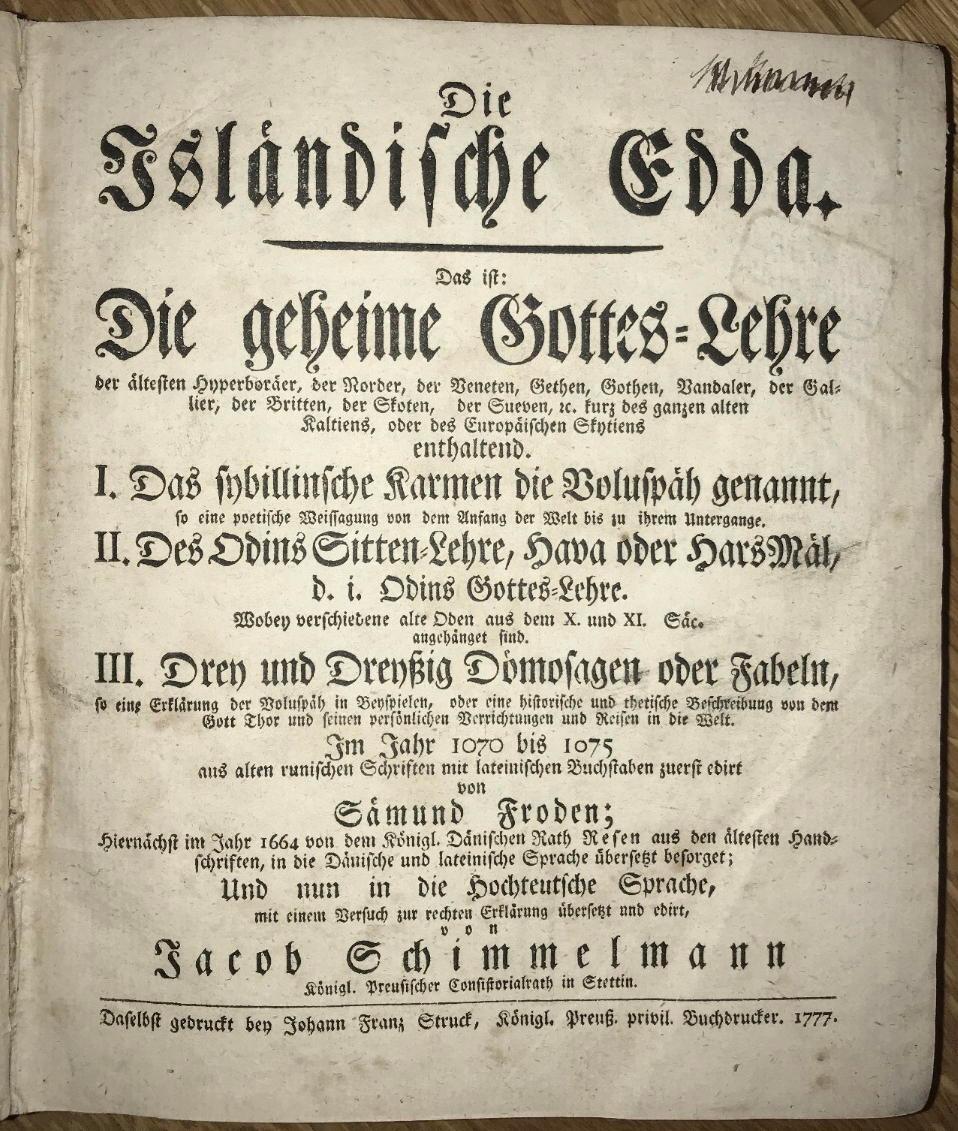 Die
Isländische Edda.
Das ist:
Die geheime Gottes=Lehre
der ältesten Hyperboräer, der Norder, der Veneten, Gethen, Gothen, Vandaler, der Gal=
lier, der Britten, der Skoten, der Sueven, ꝛc. kurz des ganzen alten
Kaltiens, oder des Europäischen Skytiens
enthaltend.
I. Das sybillinsche Karmen die Voluspäh genannt,
so eine poetische Weissagung von dem Anfang der Welt bis zu ihrem Untergange.
II. Des Odins Sitten=Lehre, Hava oder Hars Mäl,
d. i. Odins Gottes=Lehre.
Wobey verschiedene alte Oden aus dem X. und XI. Säc.
angehänget sind.
III. Drey und Dreyßig Dömosagen oder Fabeln,
so eine Erklärung der Voluspäh in Beyspielen, oder eine historische und thetische Beschreibung von dem
Gott Thor und seinen persönlichen Verrichtungen und Reisen in die Welt.
Im Jahr 1070 bis 1075
aus alten runischen Schriften mit lateinischen Buchstaben zuerst edirt
von
Sämund Froden;
Hiernächst im Jahr 1664 von dem Königl. Dänischen Rath Resen aus den ältesten Hand=
schriften, in die Dänische und lateinische Sprache übersetzt besorget;
Und nun in die Hochteutsche Sprache,
mit einem Versuch zur rechten Erklärung übersetzt und edirt,
von
Jacob Schimmelmann
Königl. Preusischer Consistorialrath in Stettin.
Daselbst gedruckt bey Johann Franz Struck, Königl. Preuß. privil. Buchdrucker. 1777.